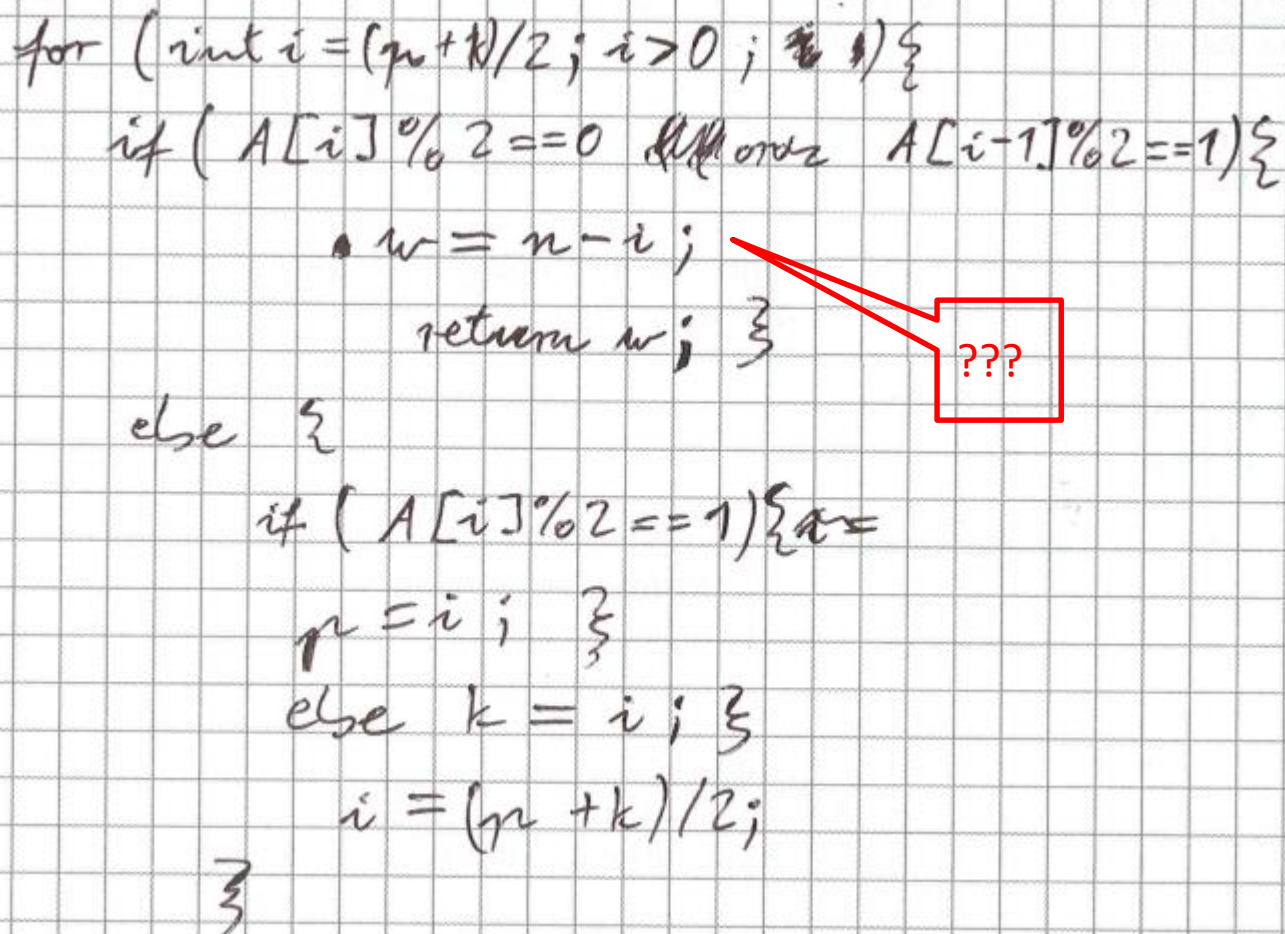 for (int i=(p+k)/2; i>0; ){
if ( A[i]%2==0 oraz A[i-1]%2==1){
w = n-i;
return w; }
???
else {
if ( A[i]%2==1){
p=i; }
else k = i; }
i = (p+k)/2;
}